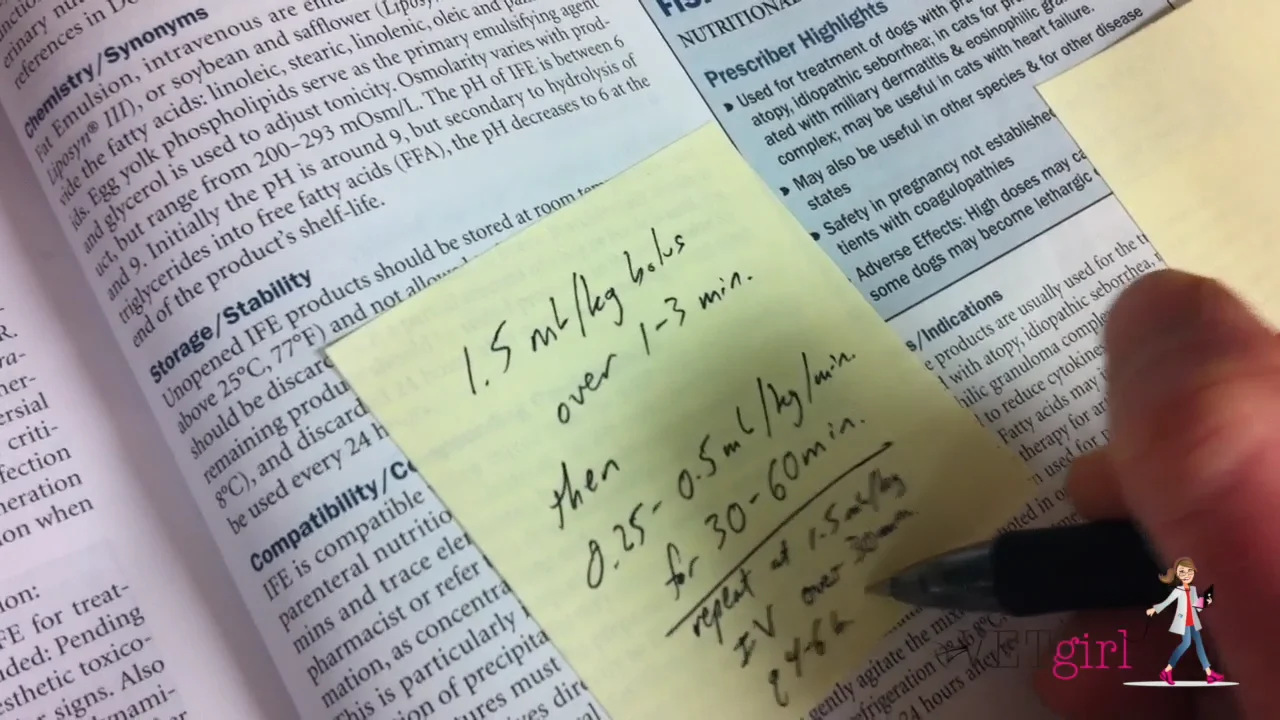 inary nu
references in De
Chemistry/Synonyms
Fat Emulsion, intravenous are em
Liposyn® III), or soybean and safflower (Liposyn
vide the fatty acids: linoleic, stearic, linolenic, oleic and pal
ids. Egg yolk phospholipids serve as the primary emulsifying agent
and glycerol is used to adjust tonicity. Osmolarity varies with prod-
uct, but range from 200–293 mOsm/L. The pH of IFE is between 6
and 9. Initially the pH is around 9, but secondary to hydrolysis of
triglycerides into free fatty acids (FFA), the pH decreases to 6 at the
end of the product's shelf-life.
Storage/Stability
Unopened IFE products should be stored at room tem
above 25°C, 77°F) and not allow
should be discard
remaining produ
8°C), and discard
be used every 24 h
Compatibility/Co
IFE is compatible
parenteral nutrition
mins and trace ele
pharmacist or refer
mation, as concentra
This is particularly
tion of precipita
tures must
ves dire
1.5 mL/kg bolus
over 1-3 min.
then
0.25- 0.5mL/kg/min.
for 30-60min.
repeat at 1.5mL/kg
IV over 30min
q 4-6 h
NUTRITIONAL
Prescriber Highlights
Used for treatment of dogs with pr
atopy, idiopathic seborrhea; in cats for pr
ated with miliary dermatitis & eosinophilic gra
complex; may be useful in cats with heart failure.
May also be useful in other species & for other disease
states
Safety in pregnancy not established
tients with coagulopathies
Adverse Effects: High doses may ca
some dogs may become lethargic
s/Indications
e products are usually used for the tr
d with atopy, idiopathic seborrhea,
hilic granuloma comple
to reduce cytokines
Fatty acids may i
therapy for an
n used for
gently agitate the mix
refrigeration
24 hours after
R
her-
ersial
criti-
fection
neration
ion when
ion:
FE for treat-
ded: Pending
sthetic toxico-
r signs. Also
dynami-
VETgirl